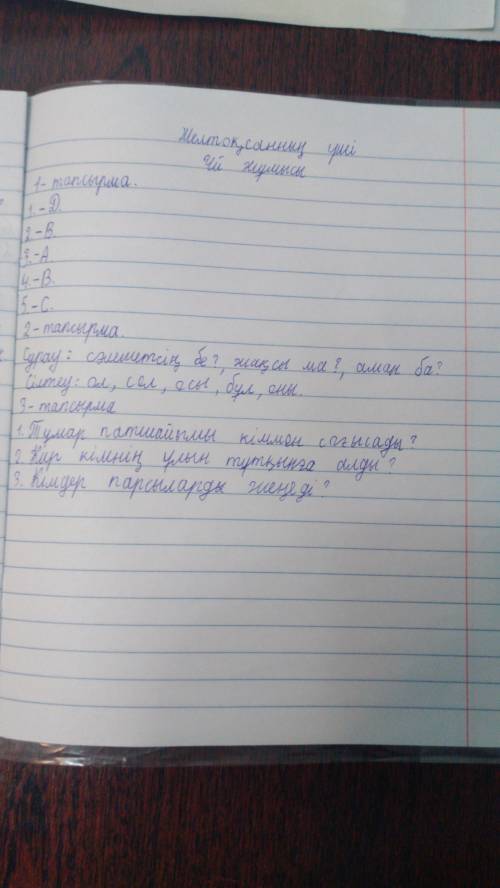 Желтоқсанның үші
Үй жұмысы
1-тапсырма.
1.-D.
2.-B.
3.-A.
4.-B.
5.-C.
2-тапсырма.
Сұрау: сәлеметсің бе?, жақсы ма?, аман ба?
Сілтеу: ол, сол, осы, бұл, оны.
3-тапсырма
1. Тұмар патшайымы кіммен соғысады?
2. Кир кімнің ұлын тұтқынға алды?
3. Кімдер парсыларды жеңеді?